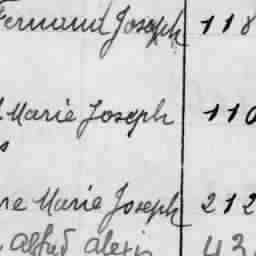 Fernand Joseph 118
Marie Joseph 110
s
re Marie Joseph 212
alfred alexis 42